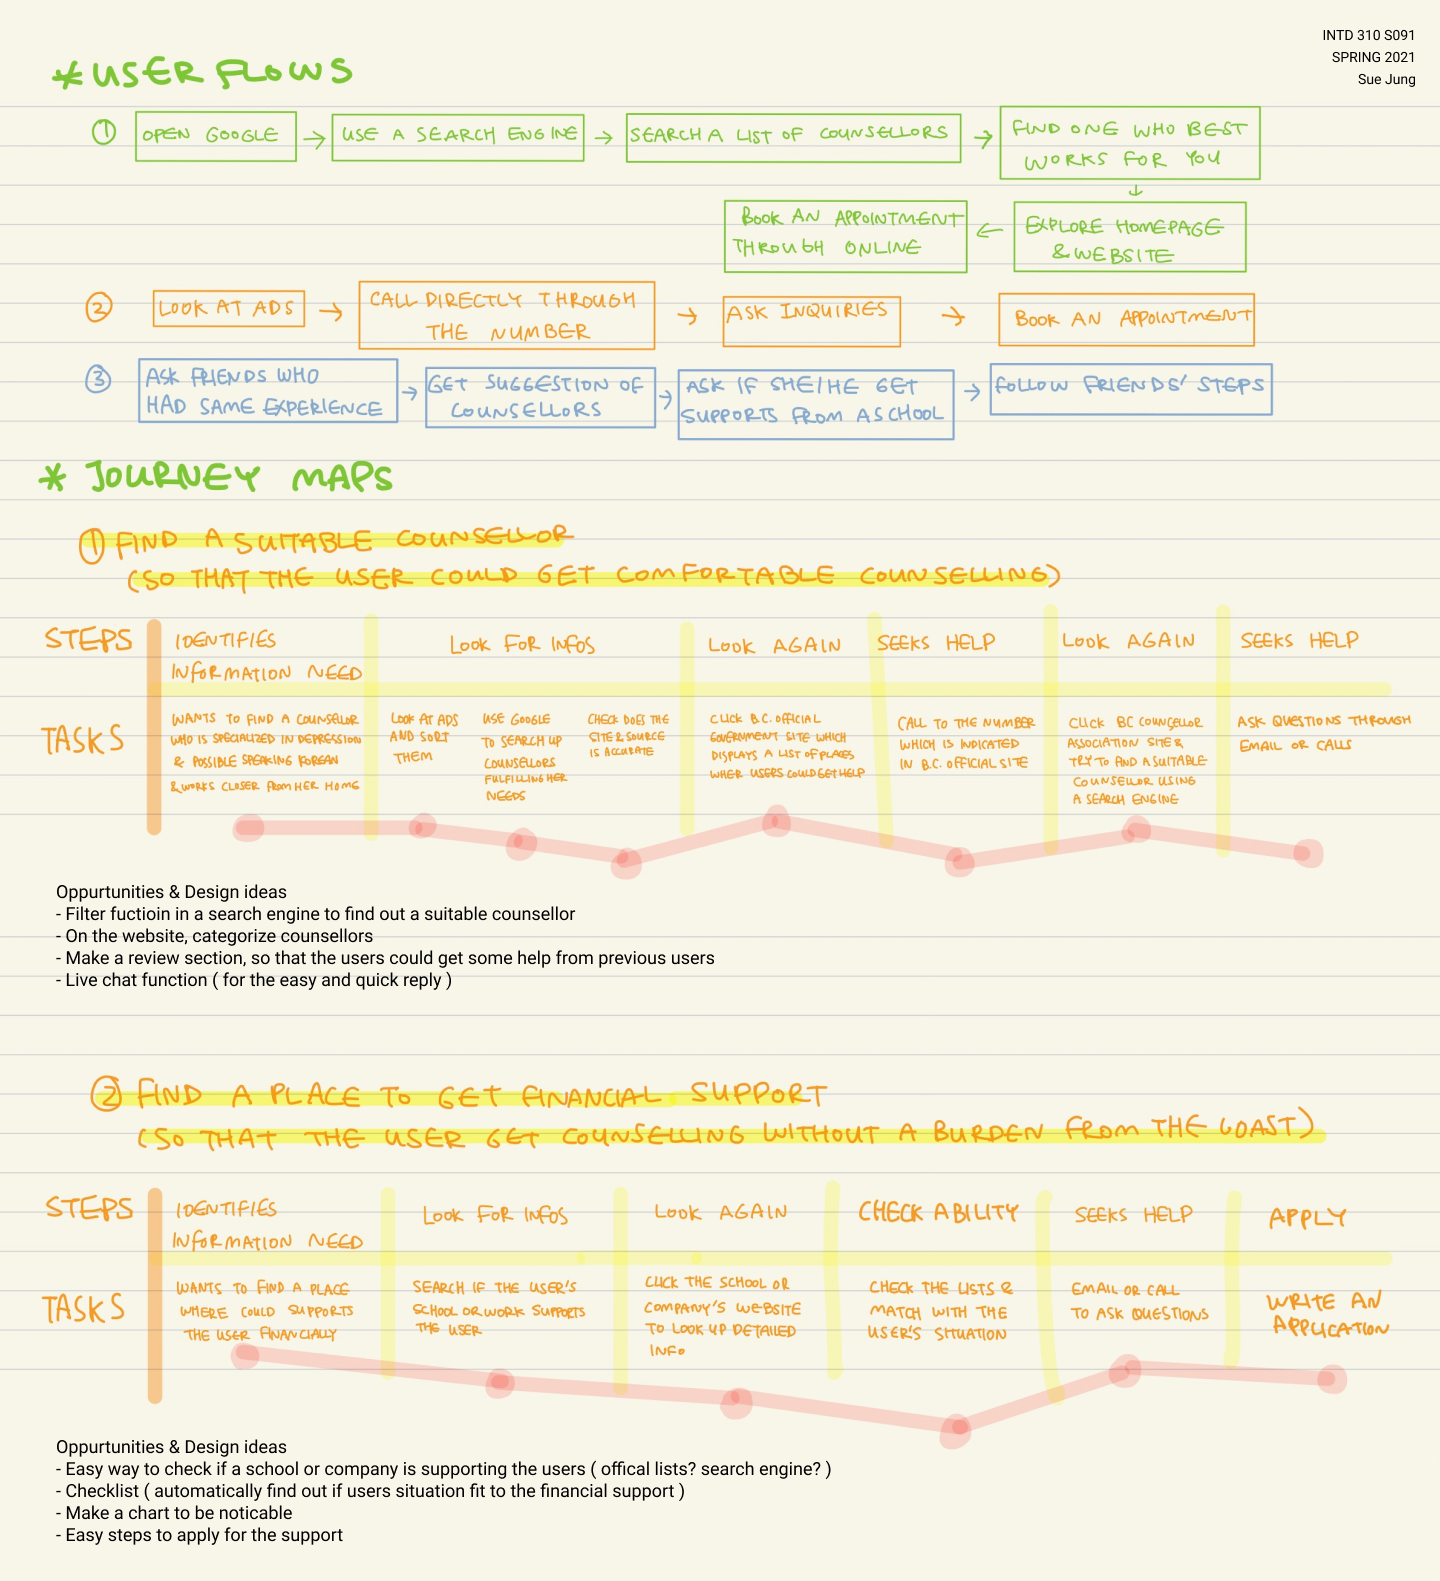 INTD 310 S091
SPRING 2021
Sue Jung
* USER FLOWS
① OPEN GOOGLE → USE A SEARCH ENGINE → SEARCH A LIST OF COUNSELLORS → FIND ONE WHO BEST
WORKS FOR YOU
↓
EXPLORE HOMEPAGE
& WEBSITE
← BOOK AN APPOINTMENT
THROUGH ONLINE
② LOOK AT ADS → CALL DIRECTLY THROUGH
THE NUMBER
→ ASK INQUIRIES → BOOK AN APPOINTMENT
③ ASK FRIENDS WHO
HAD SAME EXPERIENCE
→ GET SUGGESTION OF
COUNSELLORS
→ ASK IF SHE/HE GET
SUPPORTS FROM A SCHOOL
→ FOLLOW FRIENDS' STEPS
* JOURNEY MAPS
① FIND A SUITABLE COUNSELLOR
(SO THAT THE USER COULD GET COMFORTABLE COUNSELLING)
STEPS
IDENTIFIES
INFORMATION NEED
LOOK FOR INFOS
LOOK AGAIN
SEEKS HELP
LOOK AGAIN
SEEKS HELP
TASKS
WANTS TO FIND A COUNSELOR
WHO IS SPECIALIZED IN DEPRESSION
& POSSIBLE SPEAKING KOREAN
& WORKS CLOSER FROM HER HOME
LOOK AT ADS
AND SORT
THEM
USE GOOGLE
TO SEARCH UP
COUNSELLORS
FULFILLING HER
NEEDS
CHECK DOES THE
SITE & SOURCE
IS ACCURATE
CLICK B.C. OFFICIAL
GOVERNMENT SITE WHICH
DISPLAYS A LIST OF PLACES
WHER USERS COULD GET HELP
CALL TO THE NUMBER
WHICH IS INDICATED
IN B.C. OFFICIAL SITE
CLICK BC COUNCELLOR
ASSOCIATION SITE &
TRY TO FIND A SUITABLE
COUNSELLOR USING
A SEARCH ENGINE
ASK QUESTIONS THROUGH
EMAIL OR CALLS
Oppurtunities & Design ideas
- Filter fuctioin in a search engine to find out a suitable counsellor
- On the website, categorize counsellors
- Make a review section, so that the users could get some help from previous users
- Live chat function ( for the easy and quick reply )
② FIND A PLACE TO GET FINANCIAL SUPPORT
(SO THAT THE USER GET COUNSELLING WITHOUT A BURDEN FROM THE COAST)
STEPS
IDENTIFIES
INFORMATION NEED
LOOK FOR INFOS
LOOK AGAIN
CHECK ABILITY
SEEKS HELP
APPLY
TASKS
WANTS TO FIND A PLACE
WHERE COULD SUPPORTS
THE USER FINANCIALLY
SEARCH IF THE USER'S
SCHOOL OR WORK SUPPORTS
THE USER
CLICK THE SCHOOL OR
COMPANY'S WEBSITE
TO LOOK UP DETAILED
INFO
CHECK THE LISTS &
MATCH WITH THE
USER'S SITUATION
EMAIL OR CALL
TO ASK QUESTIONS
WRITE AN
APPLICATION
Oppurtunities & Design ideas
- Easy way to check if a school or company is supporting the users ( offical lists? search engine? )
- Checklist ( automatically find out if users situation fit to the financial support )
- Make a chart to be noticable
- Easy steps to apply for the support